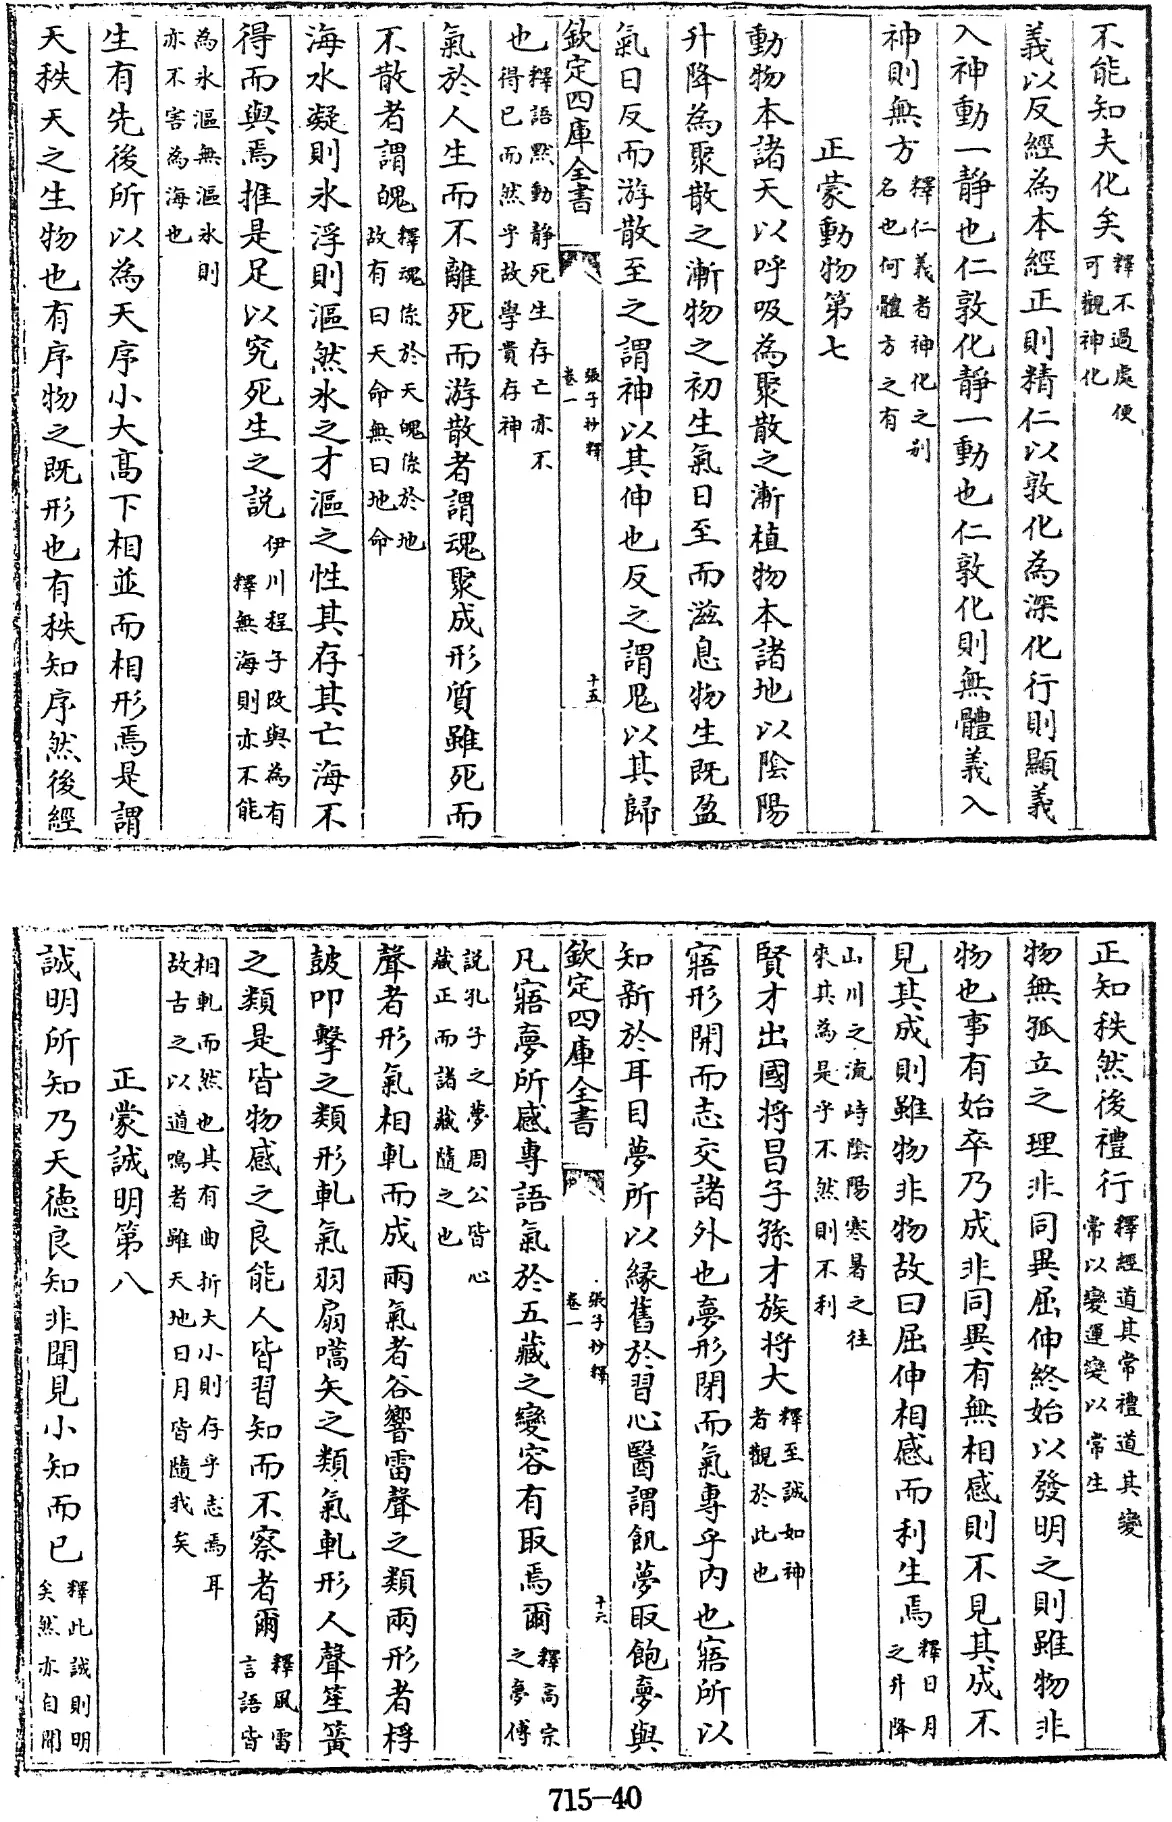 不能知夫化矣釋不過處便可觀神化
義以反經為本經正則精仁以敦化為深化行則顯義
入神動一靜也仁敦化靜一動也仁敦化則無體義入
神則無方釋仁義者神化之别名也何體方之有
正蒙動物第七
動物本諸天以呼吸為聚散之漸植物本諸地以陰陽
升降為聚散之漸物之初生氣日至而滋息物生既盈
氣日反而游散至之謂神以其伸也反之謂鬼以其歸
欽定四庫全書
張子抄釋
卷一
十五
也釋語黙動靜死生存亡亦不得已而然乎故學貴存神
氣於人生而不離死而游散者謂魂聚成形質雖死而
不散者謂魄釋魂係於天魄係於地故有曰天命無曰地命
海水凝則氷浮則漚然氷之才漚之性其存其亡海不
得而與焉推是足以究死生之說伊川程子改與為有釋無海則亦不能
為氷漚無漚氷則亦不害為海也
生有先後所以為天序小大髙下相並而相形焉是謂
天秩天之生物也有序物之既形也有秩知序然後經
正知秩然後禮行釋經道其常禮道其變常以變運變以常生
物無孤立之理非同異屈伸終始以發明之則雖物非
物也事有始卒乃成非同異有無相感則不見其成不
見其成則雖物非物故曰屈伸相感而利生焉釋日月之升降
山川之流峙陰陽寒暑之往來其為是乎不然則不利
賢才出國將昌子孫才族將大釋至誠如神者觀於此也
寤形開而志交諸外也夢形閉而氣專乎内也寤所以
知新於耳目夢所以縁舊於習心醫謂飢夢取飽夢與
欽定四庫全書
張子抄釋
卷一
十六
凡寤夢所感專語氣於五藏之變容有取焉爾釋髙宗之夢傅
說孔子之夢周公皆心藏正而諸藏隨之也
聲者形氣相軋而成兩氣者谷響雷聲之類兩形者桴
鼓叩擊之類形軋氣羽扇嚆矢之類氣軋形人聲笙簧
之類是皆物感之良能人皆習知而不察者爾釋風雷言語皆
相軋而然也其有曲折大小則存乎志焉耳故古之以道鳴者雖天地日月皆隨我矣
正蒙誠明第八
誠明所知乃天德良知非聞見小知而已釋此誠則明矣然亦自聞
715-40